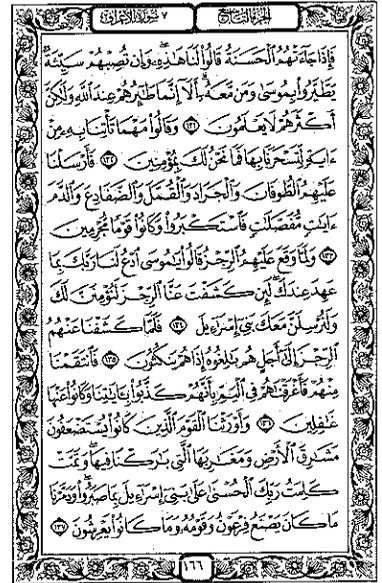 الجزء التاسع ٧ سورة الأعراف
فَإِذَا جَآءَتْهُمُ ٱلْحَسَنَةُ قَالُوا۟ لَنَا هَـٰذِهِۦ ۖ وَإِن تُصِبْهُمْ سَيِّئَةٌ
يَطَّيَّرُوا۟ بِمُوسَىٰ وَمَن مَّعَهُۥٓ ۗ أَلَآ إِنَّمَا طَـٰٓئِرُهُمْ عِندَ ٱللَّهِ وَلَـٰكِنَّ
أَكْثَرَهُمْ لَا يَعْلَمُونَ ١٣١ وَقَالُوا۟ مَهْمَا تَأْتِنَا بِهِۦ مِنْ
ءَايَةٍ لِّتَسْحَرَنَا بِهَا فَمَا نَحْنُ لَكَ بِمُؤْمِنِينَ ١٣٢ فَأَرْسَلْنَا
عَلَيْهِمُ ٱلطُّوفَانَ وَٱلْجَرَادَ وَٱلْقُمَّلَ وَٱلضَّفَادِعَ وَٱلدَّمَ
ءَايَـٰتٍ مُّفَصَّلَـٰتٍ فَٱسْتَكْبَرُوا۟ وَكَانُوا۟ قَوْمًا مُّجْرِمِينَ
١٣٣ وَلَمَّا وَقَعَ عَلَيْهِمُ ٱلرِّجْزُ قَالُوا۟ يَـٰمُوسَى ٱدْعُ لَنَا رَبَّكَ بِمَا
عَهِدَ عِندَكَ ۖ لَئِن كَشَفْتَ عَنَّا ٱلرِّجْزَ لَنُؤْمِنَنَّ لَكَ
وَلَنُرْسِلَنَّ مَعَكَ بَنِىٓ إِسْرَٰٓءِيلَ ١٣٤ فَلَمَّا كَشَفْنَا عَنْهُمُ
ٱلرِّجْزَ إِلَىٰٓ أَجَلٍ هُم بَـٰلِغُوهُ إِذَا هُمْ يَنكُثُونَ ١٣٥ فَٱنتَقَمْنَا
مِنْهُمْ فَأَغْرَقْنَـٰهُمْ فِى ٱلْيَمِّ بِأَنَّهُمْ كَذَّبُوا۟ بِـَٔايَـٰتِنَا وَكَانُوا۟ عَنْهَا
غَـٰفِلِينَ ١٣٦ وَأَوْرَثْنَا ٱلْقَوْمَ ٱلَّذِينَ كَانُوا۟ يُسْتَضْعَفُونَ
مَشَـٰرِقَ ٱلْأَرْضِ وَمَغَـٰرِبَهَا ٱلَّتِى بَـٰرَكْنَا فِيهَا ۖ وَتَمَّتْ
كَلِمَتُ رَبِّكَ ٱلْحُسْنَىٰ عَلَىٰ بَنِىٓ إِسْرَٰٓءِيلَ بِمَا صَبَرُوا۟ ۖ وَدَمَّرْنَا
مَا كَانَ يَصْنَعُ فِرْعَوْنُ وَقَوْمُهُۥ وَمَا كَانُوا۟ يَعْرِشُونَ ١٣٧
١٦٦